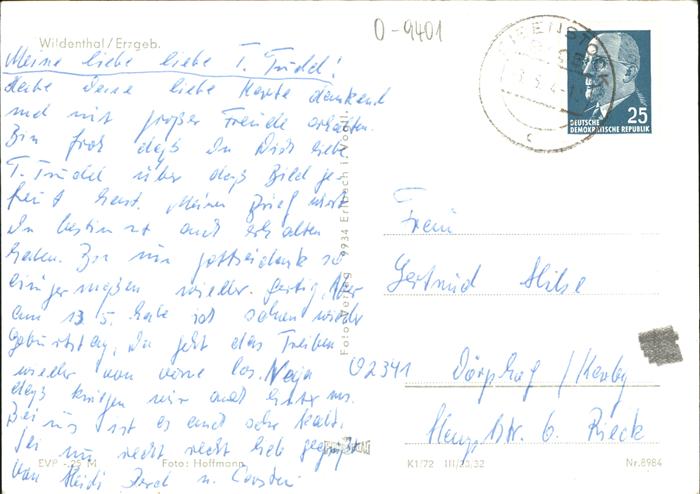 Wildenthal / Erzgeb.
Meine liebe liebe T. Trudd!
Habe Deine liebe Karte dankend
und mit großer Freude erhalten.
Bin froh daß Du Dich liebe
T. Trudd über daß Bild ge-
freut hast. Meinen Brief wirst
Du bestimmt auch erhalten
haben. Bin nun gottseidank so
einigermaßen wieder fertig,
am 13.5. habe ich schon wieder
Geburtstag, da geht das Treiben
wieder von vorne los. Naja
daß kriegen wir auch hinter uns.
Bei uns ist es auch sehr kalt.
Sei nun recht recht lieb gegrüßt
von Heidi Gerd u. Carsten
EVP -,25 M
Foto: Hoffmann
Foto-Verlag 9934 Erlbach i. Vogtl.
O-9401
EIBENSTOCK
c
25
DEUTSCHE
DEMOKRATISCHE REPUBLIK
Frau
Gertrud Hilse
O2341
Dörphof / Karby
Hauptstr. 6. Rieck
K1/72 III/20/32
Nr. 8984